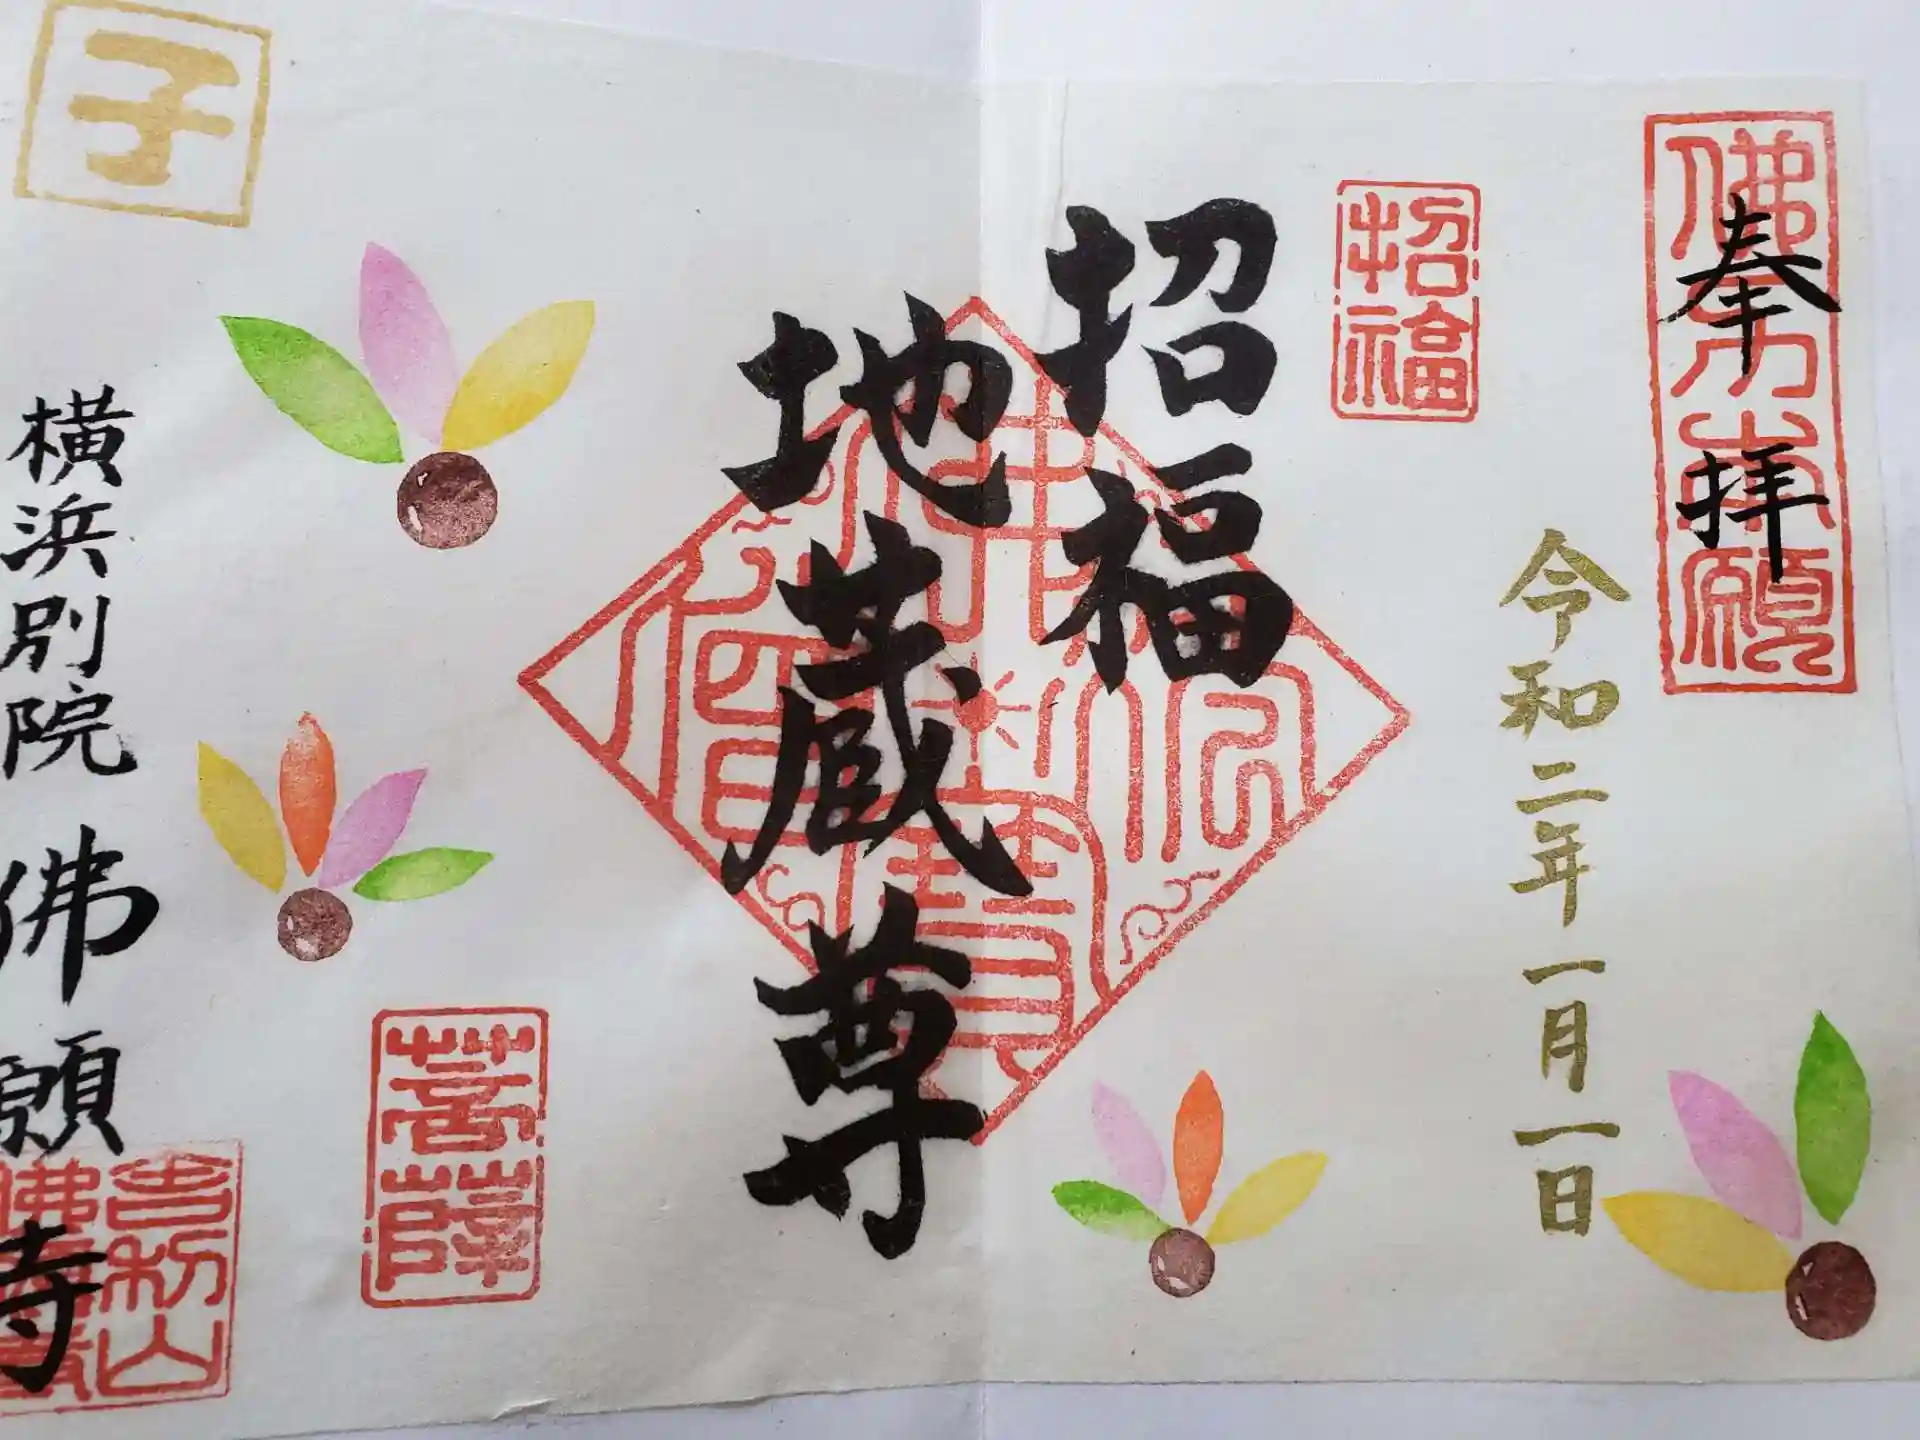 奉拝
令和二年一月一日
招福
招福
地蔵尊
菩薩
子
横浜別院
佛願寺
舎利山